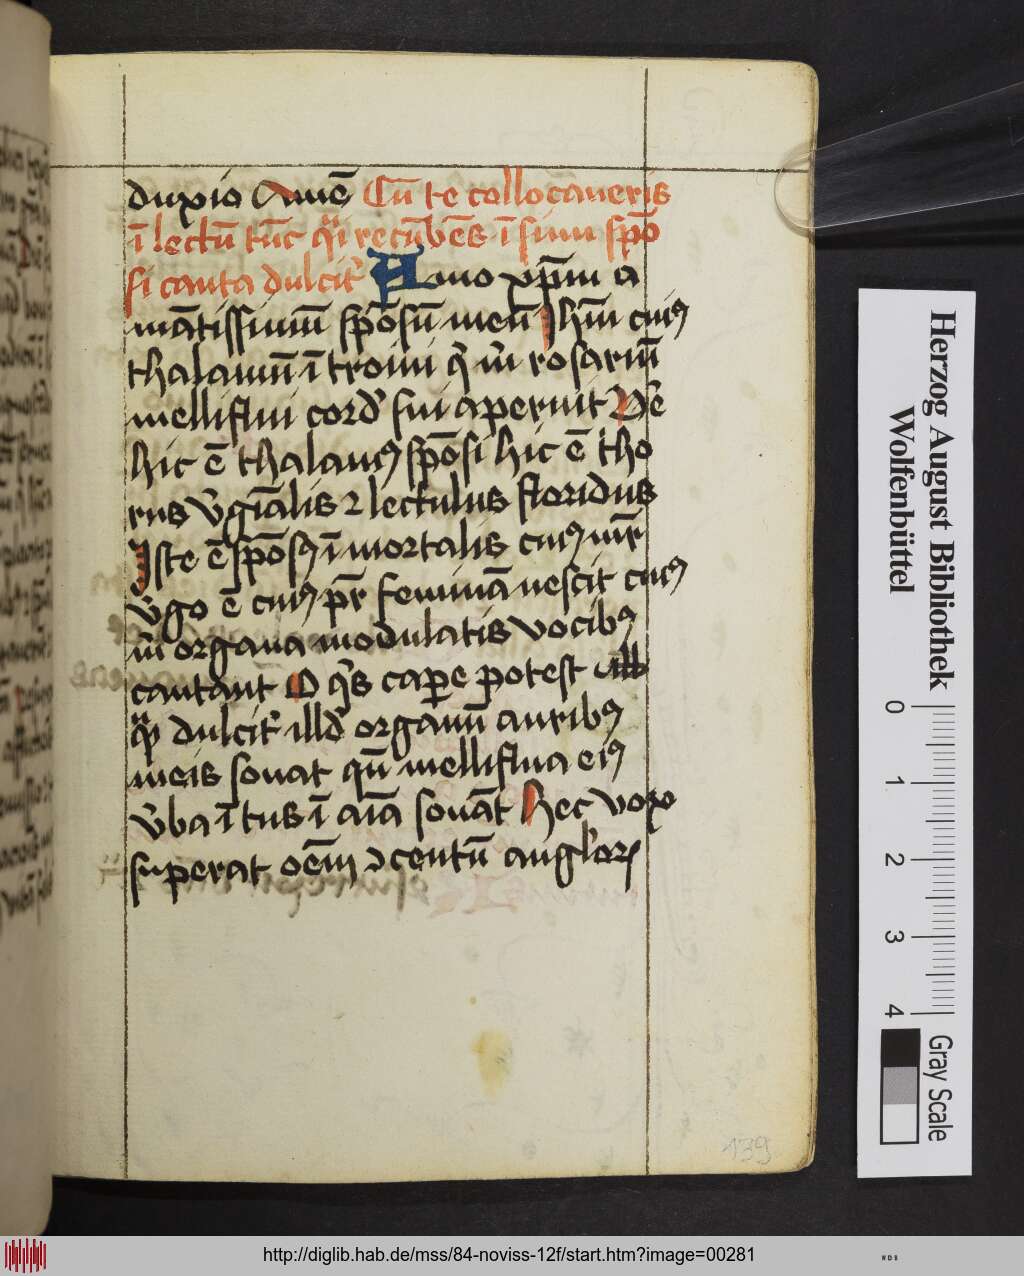 duxio Amē Cū te collocaueris
ī lectū tūc qͣi recūbēs ī sinu spō
si canta dulcit᷑ Amo xp̄m a
mātissimū spōsū meū Ihm̄ cuiꝰ
thalamū ītroiui qͥ m̄ rosariū
melliflui cord᷒ sui aperuit Ue᷑
hic ē thalamꝰ spōsi hic ē tho
rus v᷑gīalis ⁊ lectulus floridus
Iste ē spōsꝰ īmortalis cuiꝰ mr̄
v᷑go ē cuiꝰ pr̄ feminā nescit cuiꝰ
m̄ organa modulatis vocibꝰ
cantant O qͥs cape̱ potest
qͣ dulcit᷑ illd̄ organū auribꝰ
meis sonat qn̄ melliflua eiꝰ
v᷑ba ītus ī aīa sonāt Hec vox
superat oēm ꝯcentū anglorꝝ
139
Herzog August Bibliothek
Wolfenbüttel
0 1 2 3 4
Gray Scale
http://diglib.hab.de/mss/84-noviss-12f/start.htm?image=00281